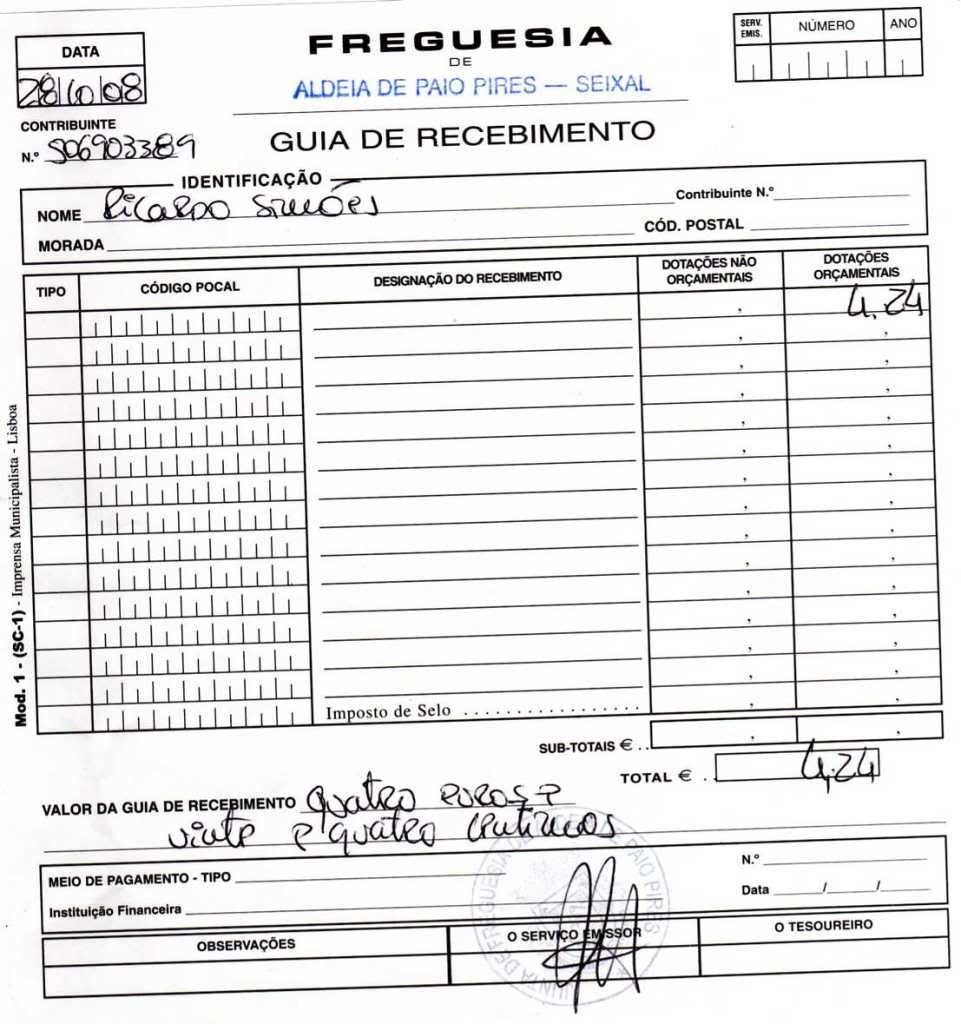 DATA
28/10/08
FREGUESIA
DE
ALDEIA DE PAIO PIRES — SEIXAL
SERV. EMIS. NÚMERO ANO
CONTRIBUINTE
N.º 506903389
GUIA DE RECEBIMENTO
IDENTIFICAÇÃO
NOME Ricardo Simões Contribuinte N.º
MORADA CÓD. POSTAL
TIPO CÓDIGO POCAL DESIGNAÇÃO DO RECEBIMENTO DOTAÇÕES NÃO ORÇAMENTAIS DOTAÇÕES ORÇAMENTAIS
4.24
Imposto de Selo
SUB-TOTAIS € ..
TOTAL € .. 4,24
VALOR DA GUIA DE RECEBIMENTO quatro euros e
vinte e quatro centimos
MEIO DE PAGAMENTO - TIPO N.º
Instituição Financeira Data / /
OBSERVAÇÕES O SERVIÇO EMISSOR O TESOUREIRO
JUNTA DE FREGUESIA DE ALDEIA DE PAIO PIRES
Mod. 1 - (SC-1) - Imprensa Municipalista - Lisboa